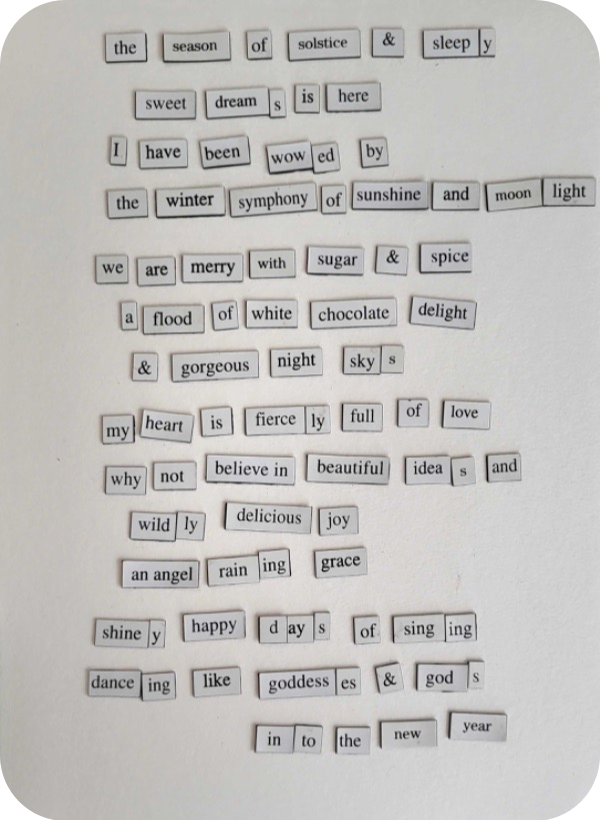 the season of solstice & sleep y
sweet dream s is here
I have been wow ed by
the winter symphony of sunshine and moon light
we are merry with sugar & spice
a flood of white chocolate delight
& gorgeous night sky s
my heart is fierce ly full of love
why not believe in beautiful idea s and
wild ly delicious joy
an angel rain ing grace
shine y happy d ay s of sing ing
dance ing like goddess es & god s
in to the new year